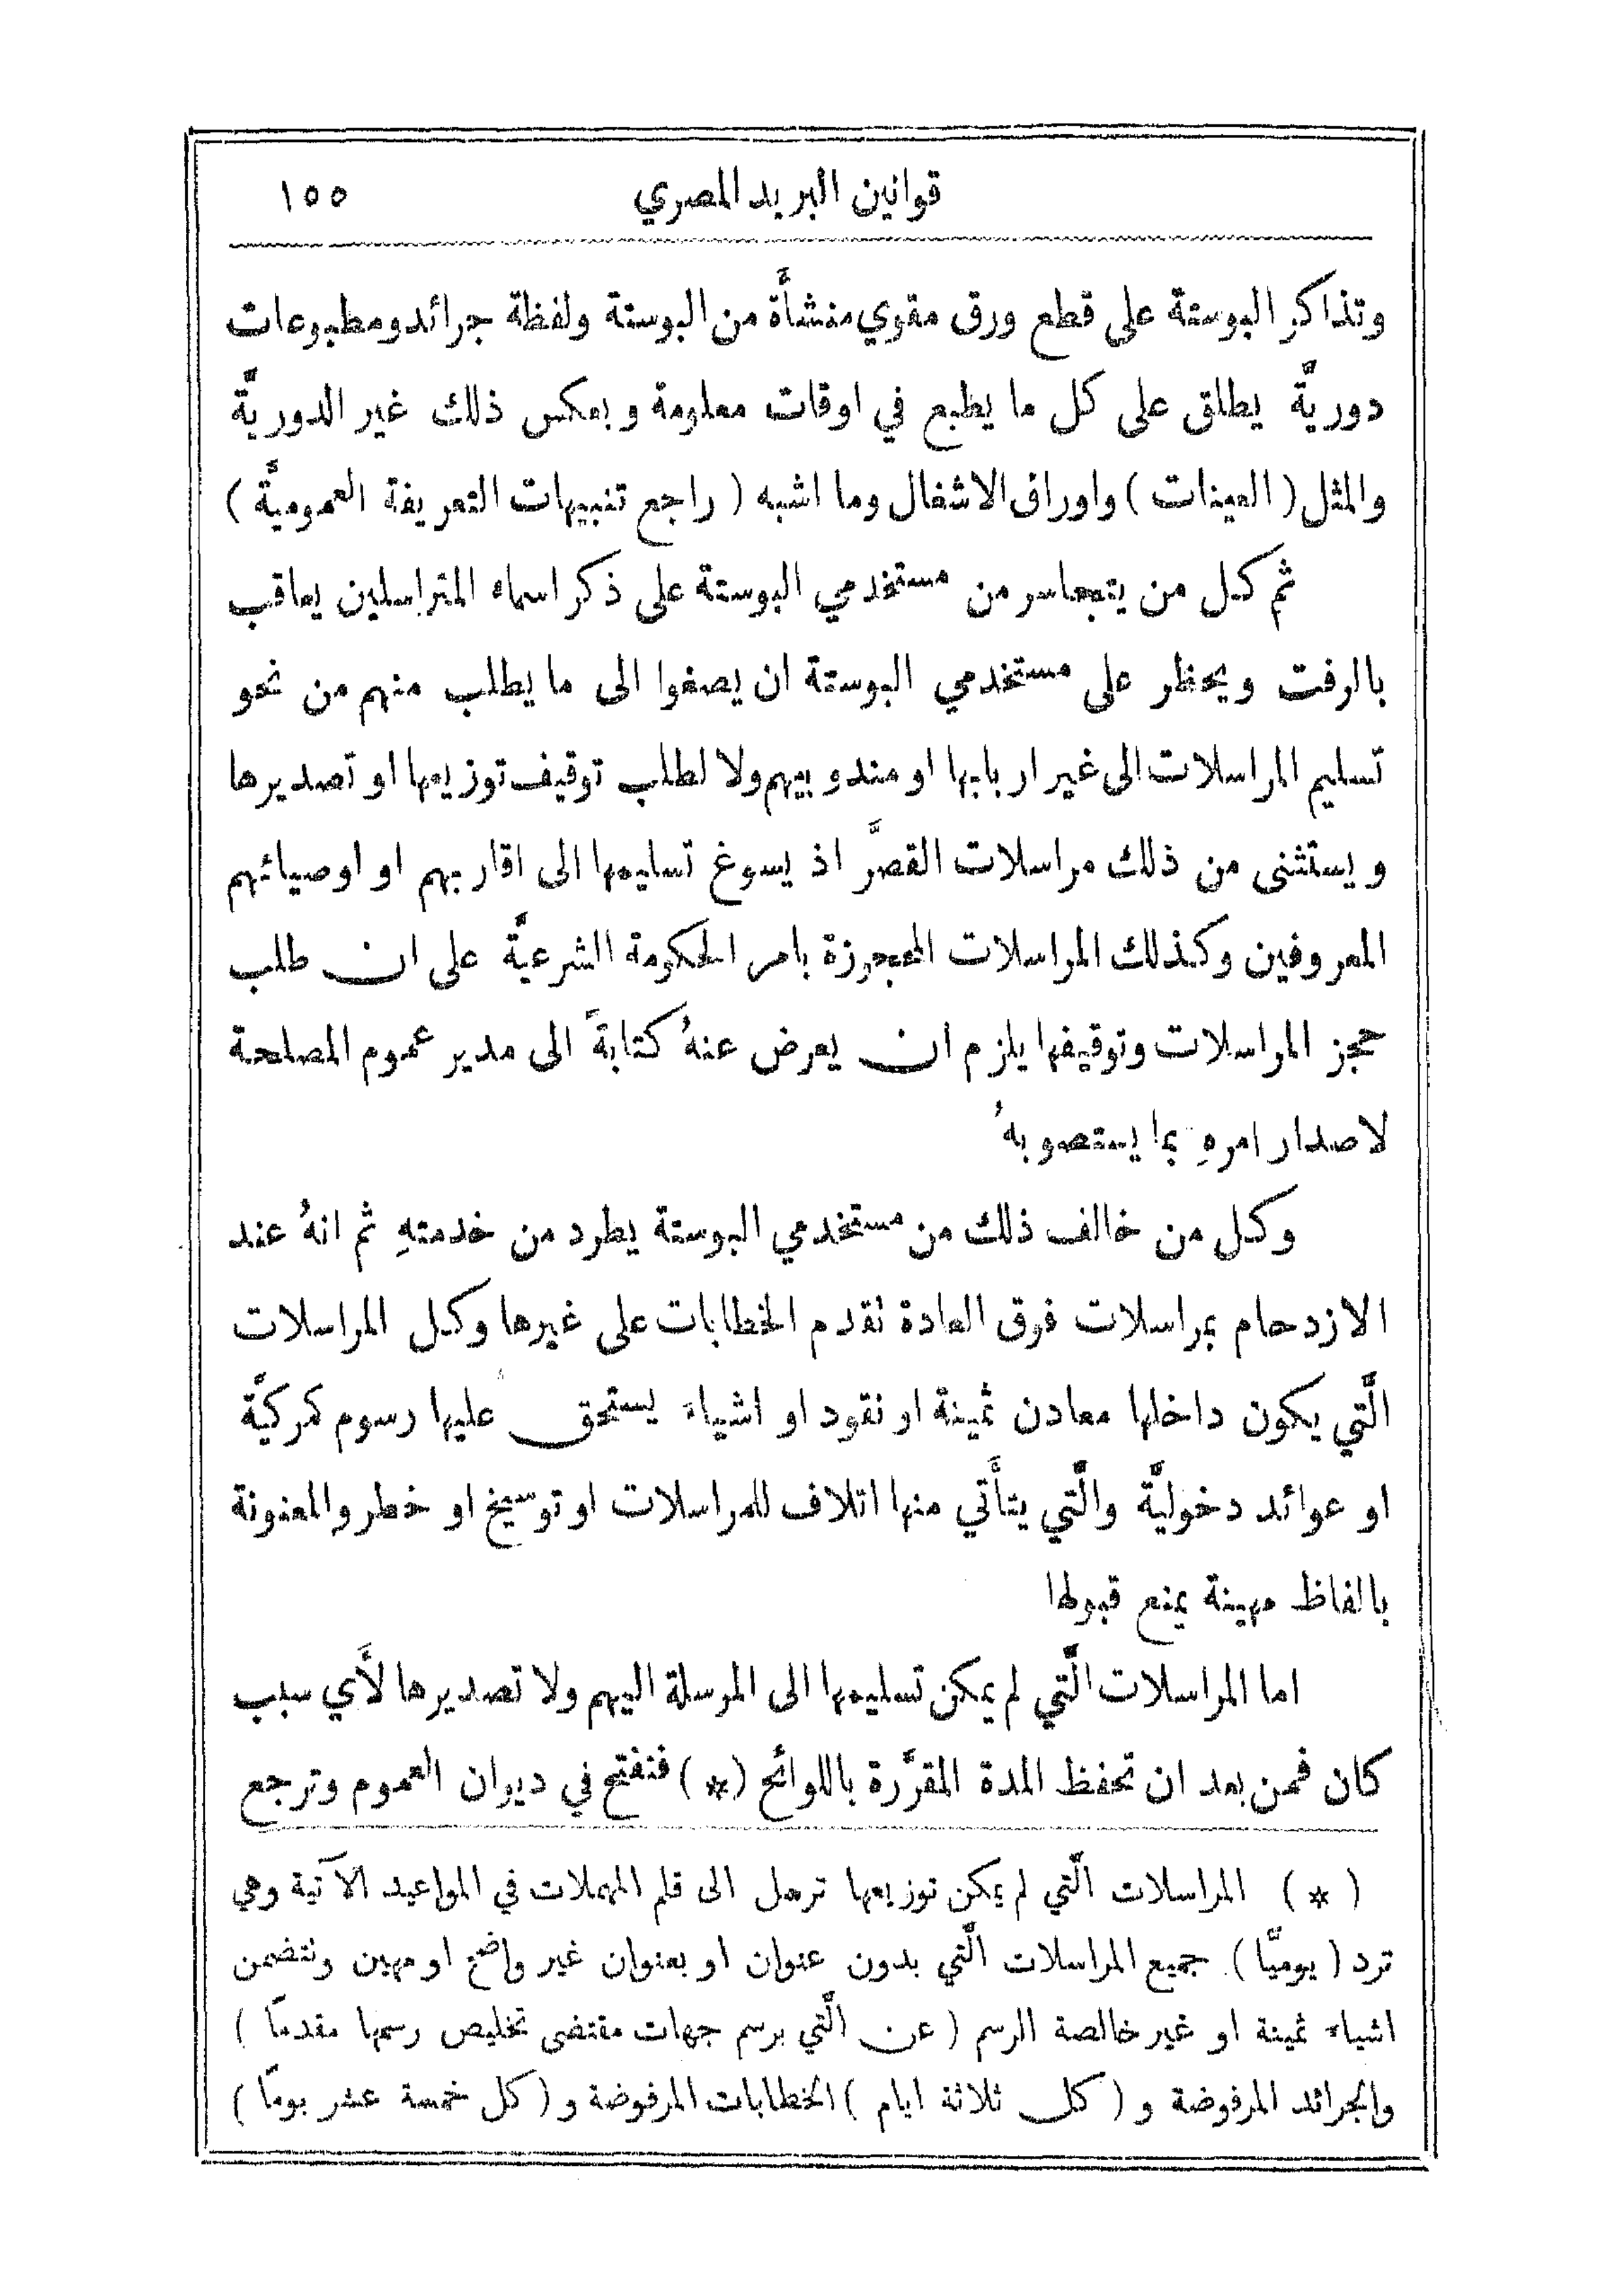 قوانين البريد المصري ١٥٥
وتذاكر البوستة على قطع ورق مقوي منشأَة من البوستة ولفظة جرائد ومطبوعات
دوريَّة يطلق على كل ما يطبع في اوقات معلومة وبعكس ذلك غير الدوريَّة
والمثل ( العينات ) واوراق الاشغال وما اشبه ( راجع تنبيهات التعريفة العموميَّة )
ثم كل من يتجاسر من مستخدمي البوستة على ذكر اسماء المتراسلين يعاقب
بالرفت ويحظر على مستخدمي البوستة ان يصغوا الى ما يطلب منهم من نحو
تسليم المراسلات الى غير اربابها او مندوبيهم ولا لطلب توقيف توزيعها او تصديرها
ويستثنى من ذلك مراسلات القصَّر اذ يسوغ تسليمها الى اقاربهم او اوصيائهم
المعروفين وكذلك المراسلات المحجوزة بامر الحكومة الشرعيَّة على ان طلب
حجز المراسلات وتوقيفها يلزم ان يعرض عنهُ كتابةً الى مدير عموم المصلحة
لاصدار امرهِ بما يستصوبهُ
وكل من خالف ذلك من مستخدمي البوستة يطرد من خدمتهِ ثم انهُ عند
الازدحام بمراسلات فوق العادة تقدم الخطابات على غيرها وكل المراسلات
الَّتي يكون داخلها معادن ثمينة او نقود او اشياء يستحق عليها رسوم كمركيَّة
او عوائد دخوليَّة والَّتي يتأَتي منها اتلاف للمراسلات او توسيخ او خطر والمعنونة
بالفاظ مهينة يمنع قبولها
اما المراسلات الَّتي لم يمكن تسليمها الى المرسلة اليهم ولا تصديرها لأَي سبب
كان فمن بعد ان تحفظ المدة المقرَّرة باللوائح (*) فتفتح في ديوان العموم وترجع
( * ) المراسلات الَّتي لم يمكن توزيعها ترسل الى قلم المهملات في المواعيد الآتية وهي
ترد ( يوميًّا ) جميع المراسلات الَّتي بدون عنوان او بعنوان غير واضح او مهين وتتضمن
اشياء ثمينة او غير خالصة الرسم ( عن الَّتي برسم جهات مقتضى تخليص رسمها مقدمًا )
والجرائد المرفوضة و ( كل ثلاثة ايام ) الخطابات المرفوضة و ( كل خمسة عشر يومًا )